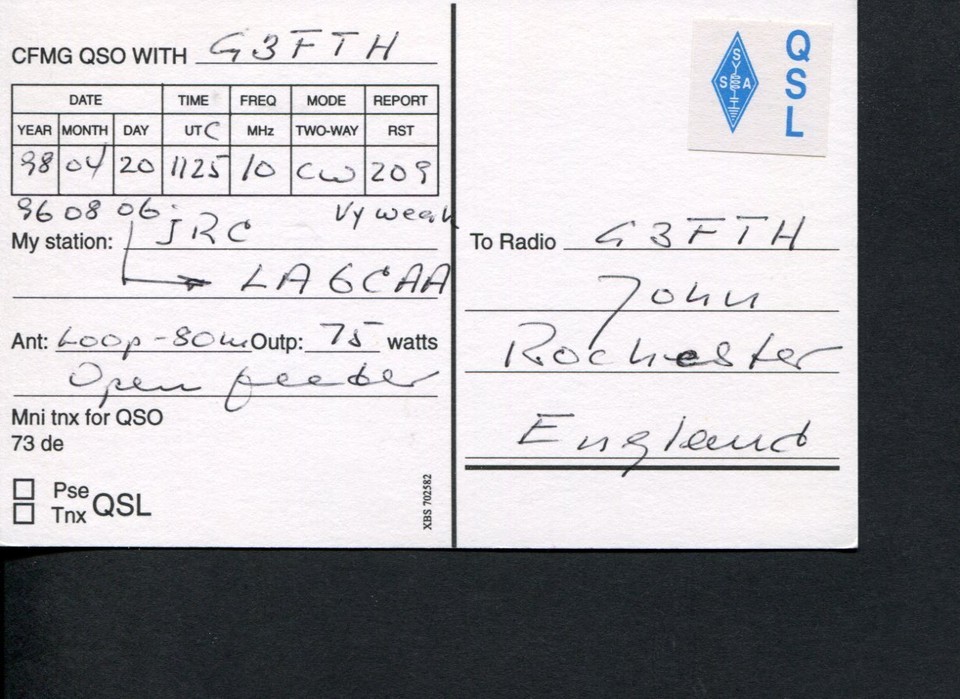 CFMG QSO WITH G3FTH
DATE TIME FREQ MODE REPORT
YEAR MONTH DAY UTC MHz TWO-WAY RST
98 04 20 1125 10 CW 209
96 08 06. Vy weak
My station: JRC
LA6CAA
Ant: Loop-80m Outp: 75 watts
Open feeder
Mni tnx for QSO
73 de
Pse
Tnx QSL
XBS 702582
S
Y
S S A
QSL
To Radio G3FTH
John
Rochester
England